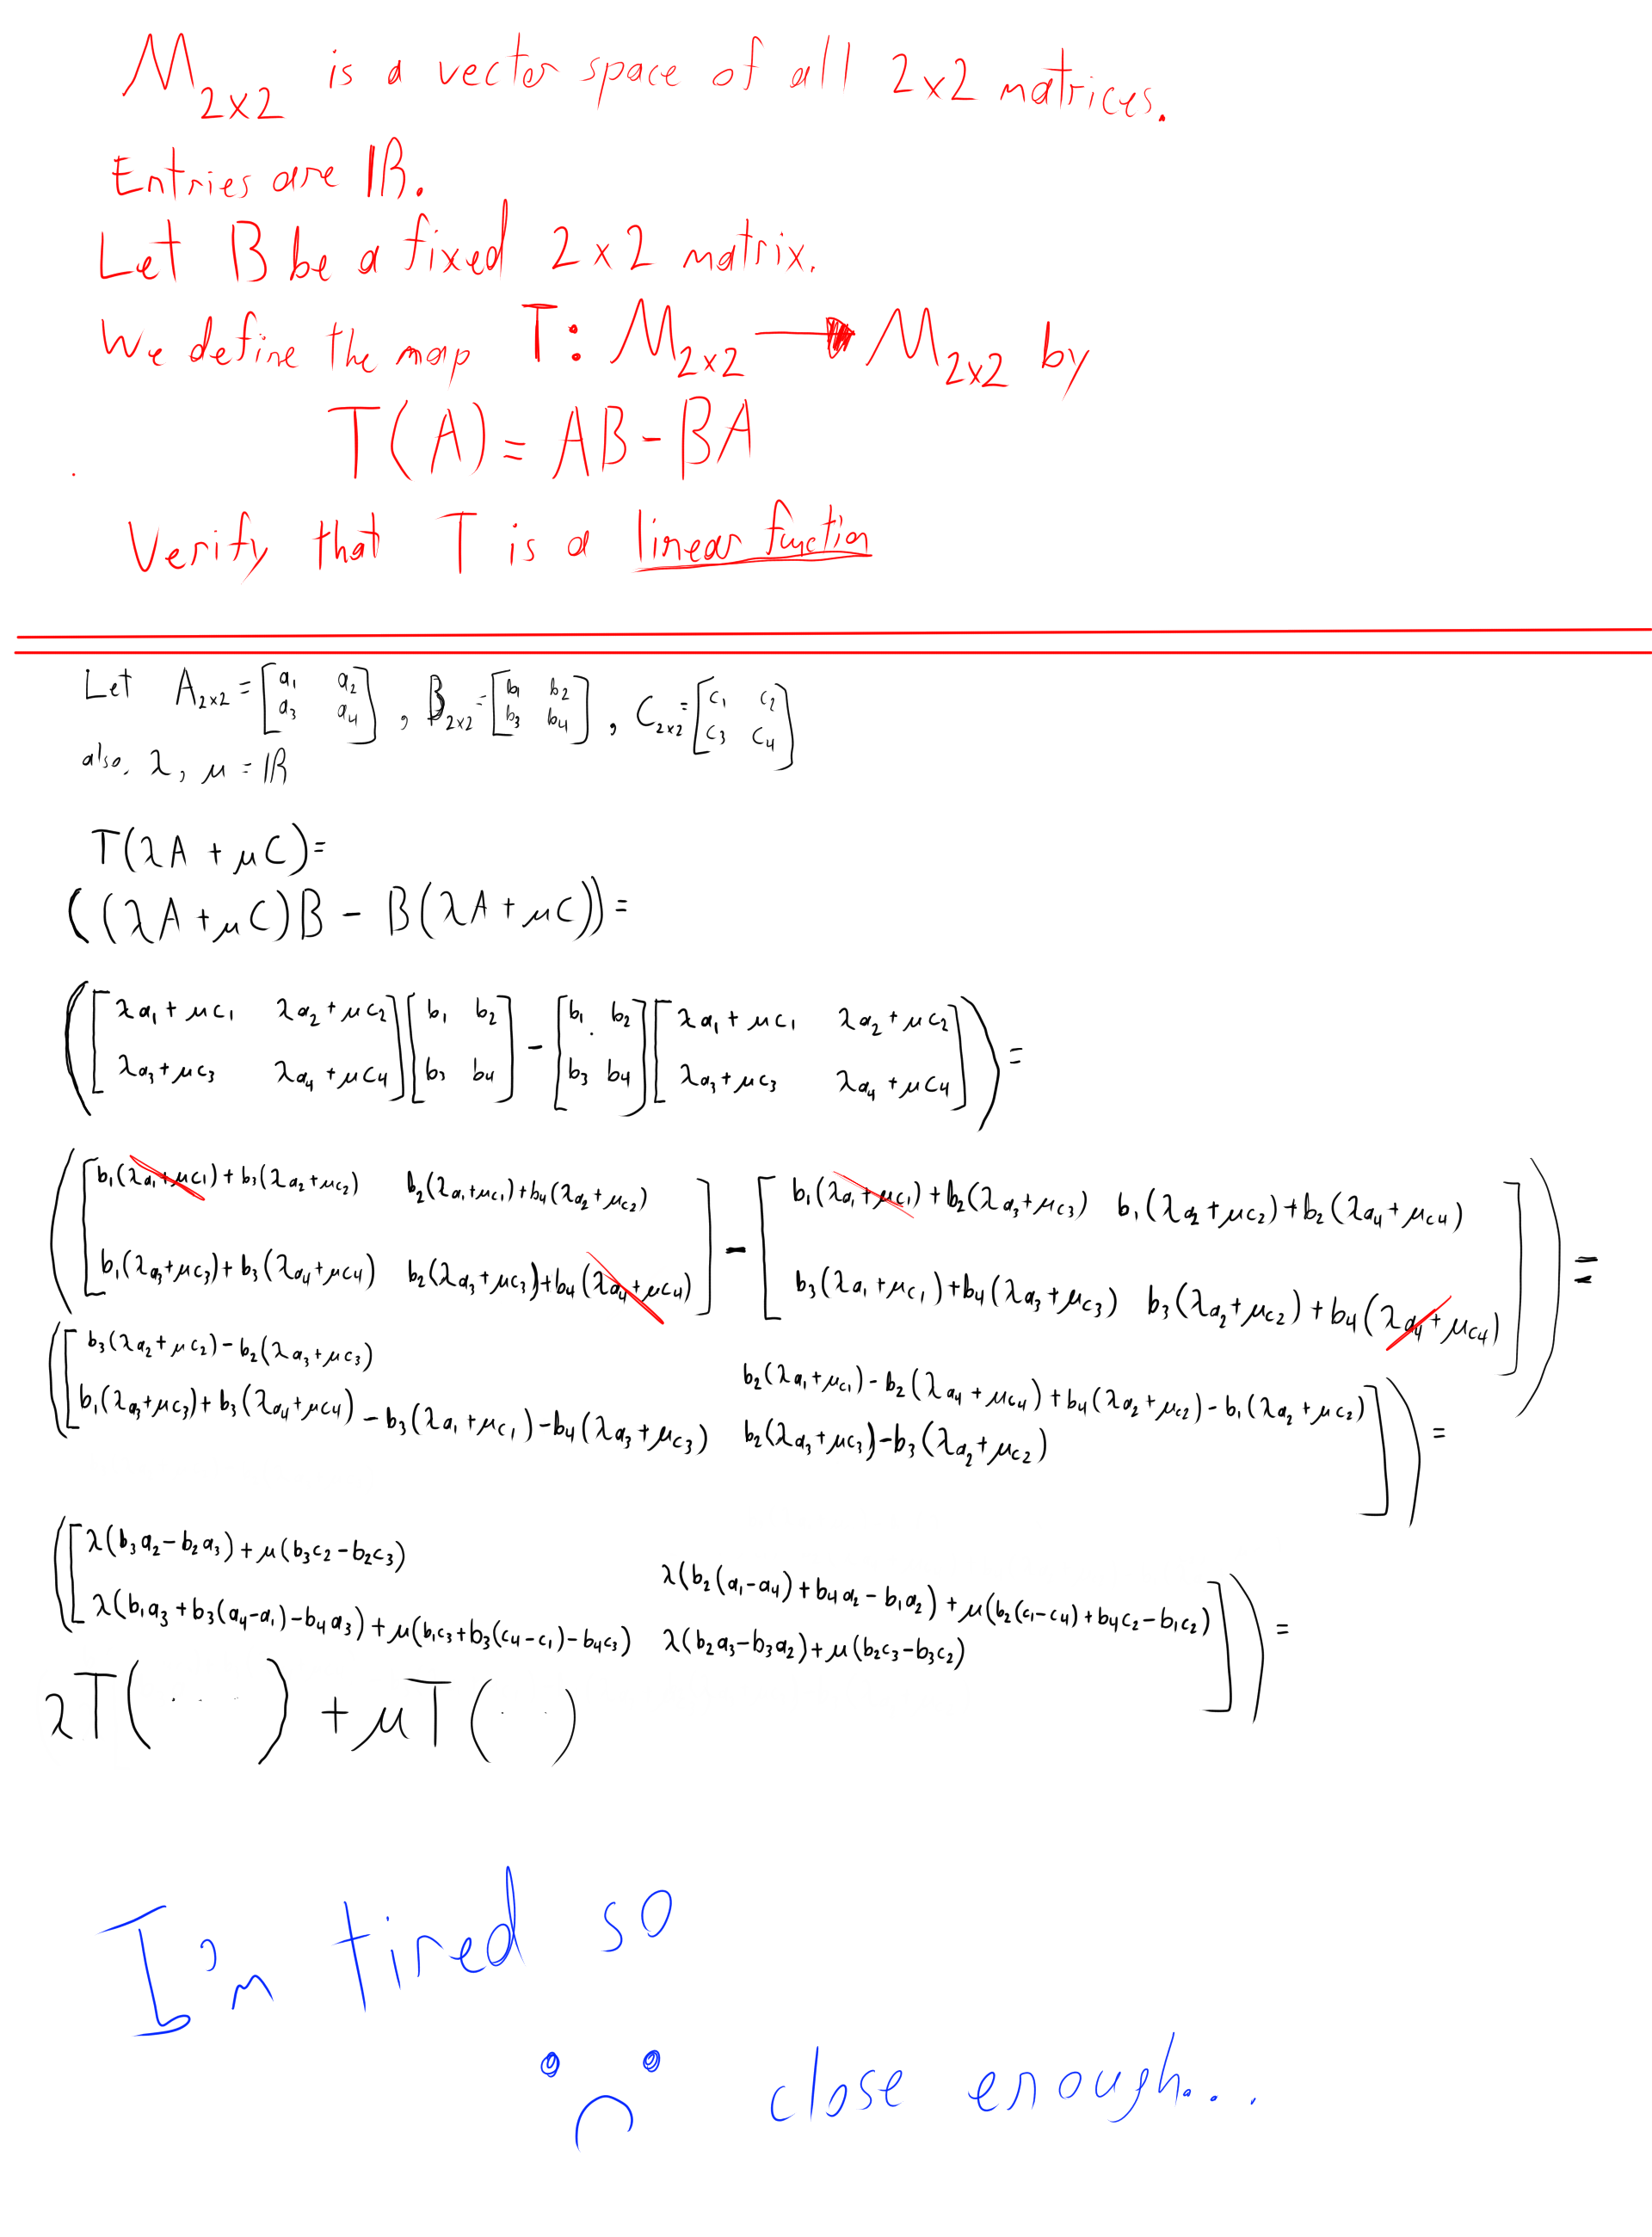 M₂ₓ₂ is a vector space of all 2x2 matrices.
Entries are ℝ.
Let B be a fixed 2x2 matrix.
We define the map T: M₂ₓ₂ → M₂ₓ₂ by
T(A) = AB - BA
Verify that T is a linear function
Let A₂ₓ₂ = [a₁ a₂; a₃ a₄], B₂ₓ₂ = [b₁ b₂; b₃ b₄], C₂ₓ₂ = [c₁ c₂; c₃ c₄]
also, λ, μ = ℝ
T(λA + μC) =
((λA + μC)B - B(λA + μC)) =
([λa₁ + μc₁ λa₂ + μc₂; λa₃ + μc₃ λa₄ + μc₄][b₁ b₂; b₃ b₄] - [b₁ b₂; b₃ b₄][λa₁ + μc₁ λa₂ + μc₂; λa₃ + μc₃ λa₄ + μc₄]) =
([b₁(λa₁ + μc₁) + b₃(λa₂ + μc₂) b₂(λa₁ + μc₁) + b₄(λa₂ + μc₂); b₁(λa₃ + μc₃) + b₃(λa₄ + μc₄) b₂(λa₃ + μc₃) + b₄(λa₄ + μc₄)] - [b₁(λa₁ + μc₁) + b₂(λa₃ + μc₃) b₁(λa₂ + μc₂) + b₂(λa₄ + μc₄); b₃(λa₁ + μc₁) + b₄(λa₃ + μc₃) b₃(λa₂ + μc₂) + b₄(λa₄ + μc₄)]) =
([b₃(λa₂ + μc₂) - b₂(λa₃ + μc₃) b₂(λa₁ + μc₁) - b₂(λa₄ + μc₄) + b₄(λa₂ + μc₂) - b₁(λa₂ + μc₂); b₁(λa₃ + μc₃) + b₃(λa₄ + μc₄) - b₃(λa₁ + μc₁) - b₄(λa₃ + μc₃) b₂(λa₃ + μc₃) - b₃(λa₂ + μc₂)]) =
([λ(b₃a₂ - b₂a₃) + μ(b₃c₂ - b₂c₃) λ(b₂(a₁ - a₄) + b₄a₂ - b₁a₂) + μ(b₂(c₁ - c₄) + b₄c₂ - b₁c₂); λ(b₁a₃ + b₃(a₄ - a₁) - b₄a₃) + μ(b₁c₃ + b₃(c₄ - c₁) - b₄c₃) λ(b₂a₃ - b₃a₂) + μ(b₂c₃ - b₃c₂)]) =
λT(...) + μT(..)
I'm tired so
close enough...